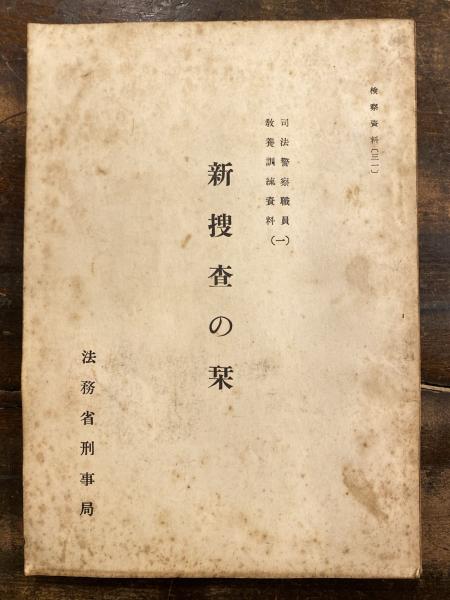 検察資料〔三一〕
司法警察職員
教養訓練資料(一)
新捜査の栞
法務省刑事局